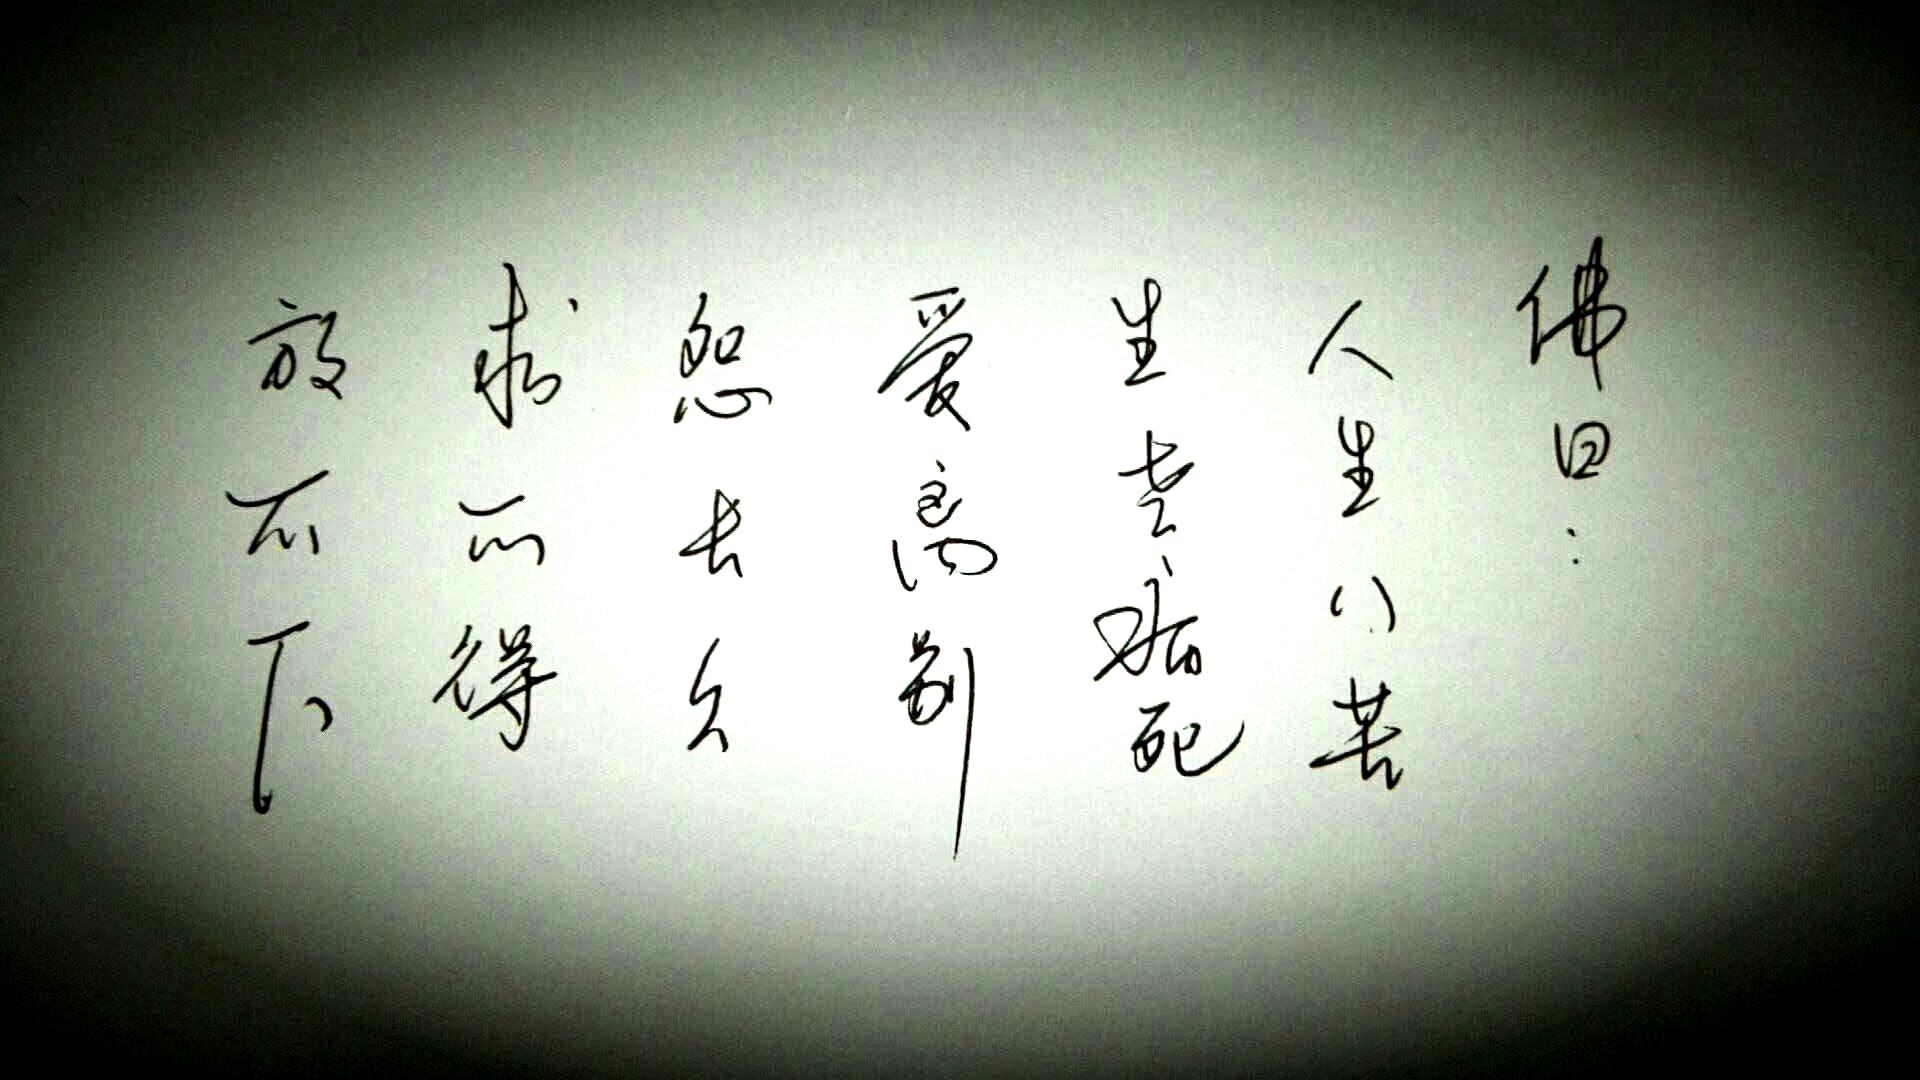 佛曰:
人生八苦
生老病死
爱离别
怨长久
求不得
放不下